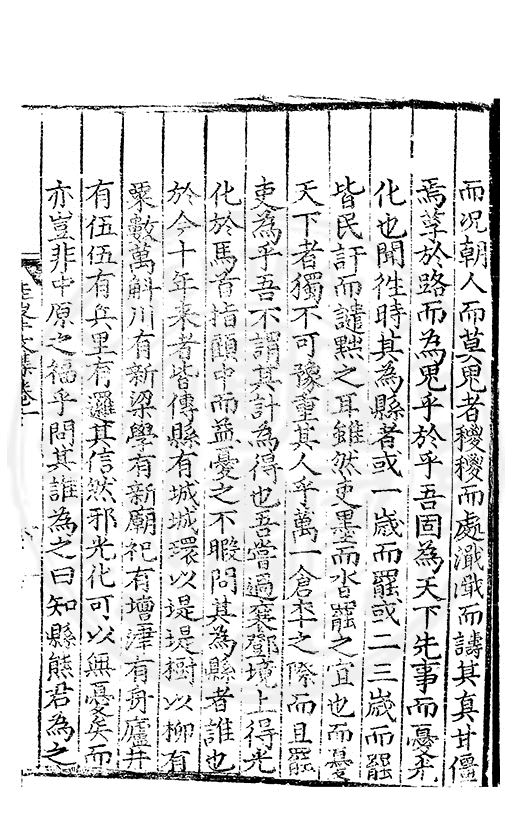 而況朝人而莫鬼者稷稷而處濈濈而讟其真甘僵
焉莩於路而為鬼乎於乎吾固為天下先事而憂光
化也聞徃時其為縣者或一歲而罷或二三歲而罷
皆民訐而讟黜之耳雖然吏墨而呰罷之宜也而憂
天下者獨不可豫重其人乎萬一倉卒之際而且罷
吏為乎吾不謂其計為得也吾嘗過襄鄧境上得光
化於馬首指顧中而益憂之不暇問其為縣者誰也
於今十年來者皆傳縣有城城環以堤堤樹以柳有
粟數萬斛川有新梁學有新廟祀有壇津有舟廬井
有伍伍有兵里有邏其信然邪光化可以無憂矣而
亦豈非中原之福乎問其誰為之曰知縣熊君為之